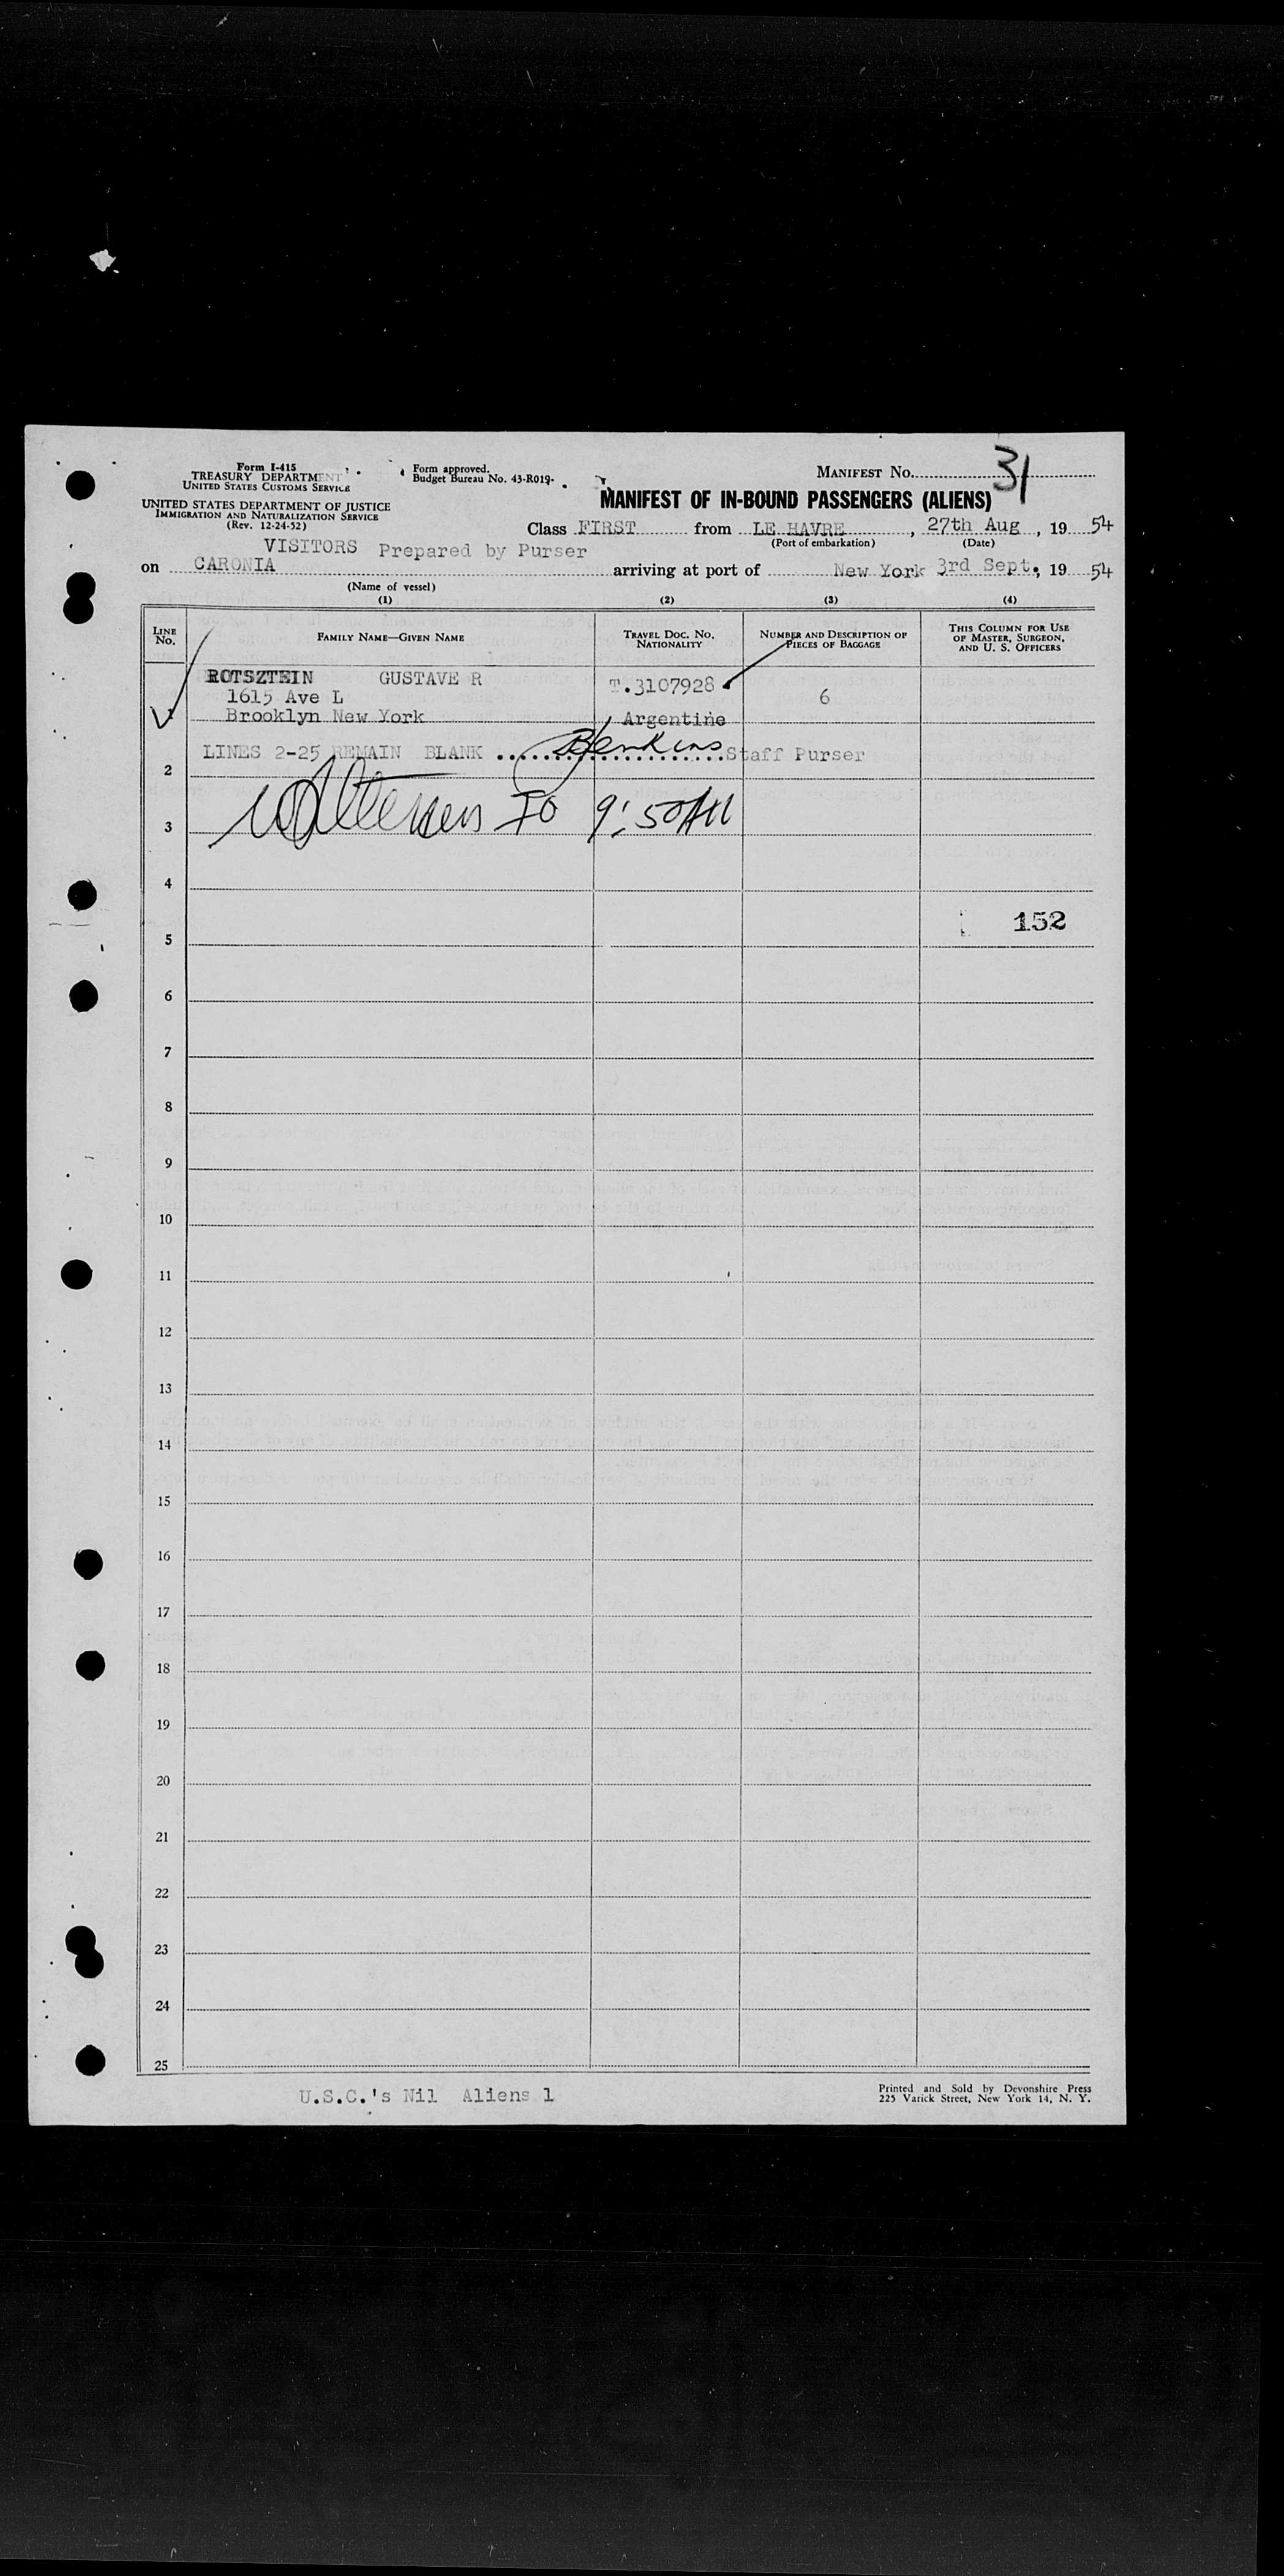 Form I-415
TREASURY DEPARTMENT
UNITED STATES CUSTOMS SERVICE
Form approved.
Budget Bureau No. 43-R019-
MANIFEST NO. 31
UNITED STATES DEPARTMENT OF JUSTICE
IMMIGRATION AND NATURALIZATION SERVICE
(Rev. 12-24-52)
MANIFEST OF IN-BOUND PASSENGERS (ALIENS)
Class FIRST from LE HAVRE, 27th Aug, 19 54
(Port of embarkation) (Date)
VISITORS Prepared by Purser
on CARONIA arriving at port of New York 3rd Sept., 19 54
(Name of vessel)
(1) (2) (3) (4)
LINE NO. FAMILY NAME—GIVEN NAME TRAVEL DOC. NO. NATIONALITY NUMBER AND DESCRIPTION OF PIECES OF BAGGAGE THIS COLUMN FOR USE OF MASTER, SURGEON, AND U. S. OFFICERS
ROTSZTEIN GUSTAVE R T.3107928
1615 Ave L 6
1 Brooklyn New York Argentine
LINES 2-25 REMAIN BLANK Jenkins Staff Purser
2
IO 9:50AM
3
4
152
5
6
7
8
9
10
11
12
13
14
15
16
17
18
19
20
21
22
23
24
25
U.S.C.'s Nil Aliens 1
Printed and Sold by Devonshire Press
225 Varick Street, New York 14, N. Y.